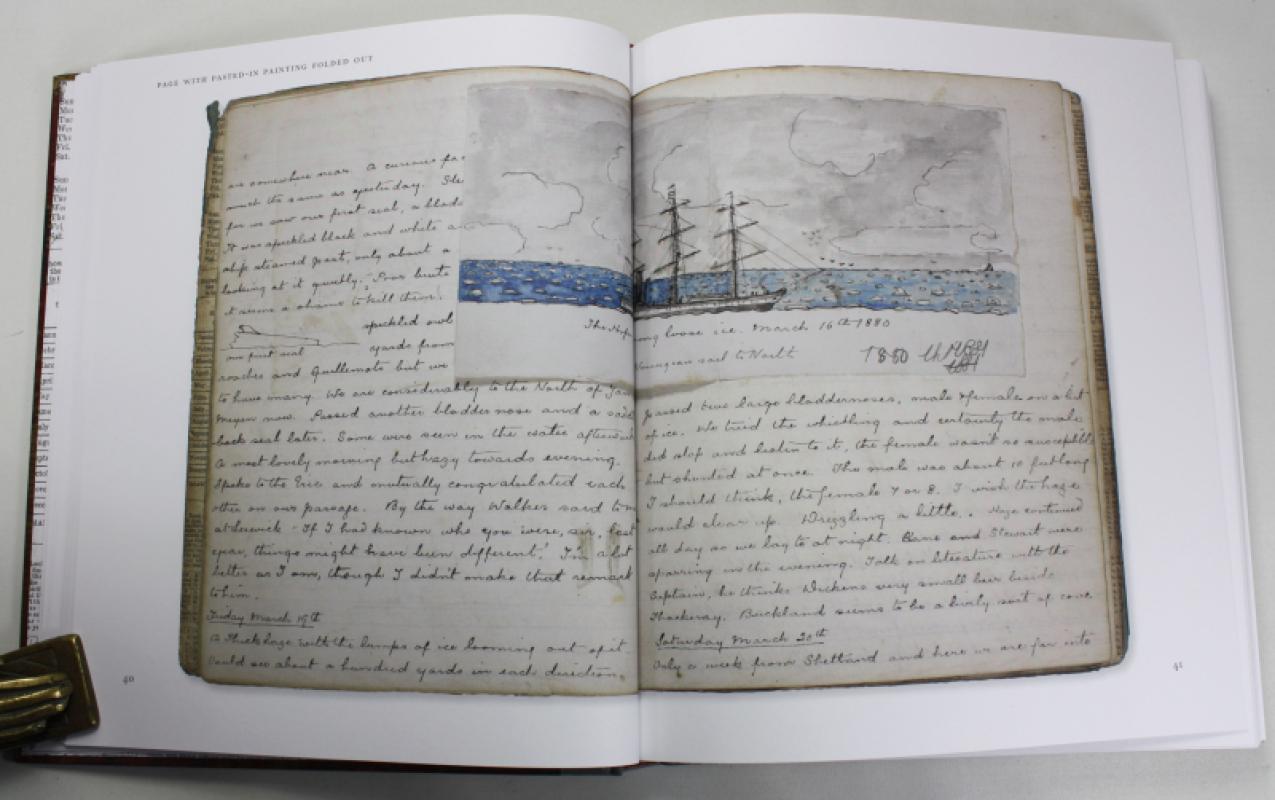 PAGE WITH PASTED-IN PAINTING FOLDED OUT
are somewhere near. A curious fac
much the same as yesterday. Ste
for we saw our first seal, a bladd
It was speckled black and white a
ship steamed past, only about a
looking at it quickly. Poor brute
it seems a shame to kill them.
speckled owl
our first seal
yards from
roaches and Guillemots but we
to have many. We are considerably to the North of Jan
Meyen now. Passed another bladdernose and a sadd
back seal later. Some were seen in the water afterwards
A most lovely morning but hazy towards evening.
Spoke to the Eric and mutually congratulated each
other on our passage. By the way Walker said to me
at Lerwick "If I had known who you were, sir, last
year, things might have been different." I'm a lot
better as I am, though I didn't make that remark
to him.
Friday March 19th
A thick haze with the lumps of ice looming out of it.
Could see about a hundred yards in each direction.
40
The Hope
ong loose ice. March 16th 1880
Norwegian sail to North
1880
Passed two large bladdernoses, male & female on a bit
of ice. We tried the whistling and certainly the male
did stop and listen to it, the female wasn't so susceptible
but shunted at once. The male was about 10 feet long
I should think, the female 7 or 8. I wish the haze
would clear up. Drizzling a little. Haze continued
all day so we lay to at night. Cane and Stewart were
sparring in the evening. Talk on literature with the
Captain, he thinks Dickens very small beer beside
Thackeray. Buckland seems to be a lively sort of cove
Saturday March 20th
Only a week from Shetland and here we are far into
41